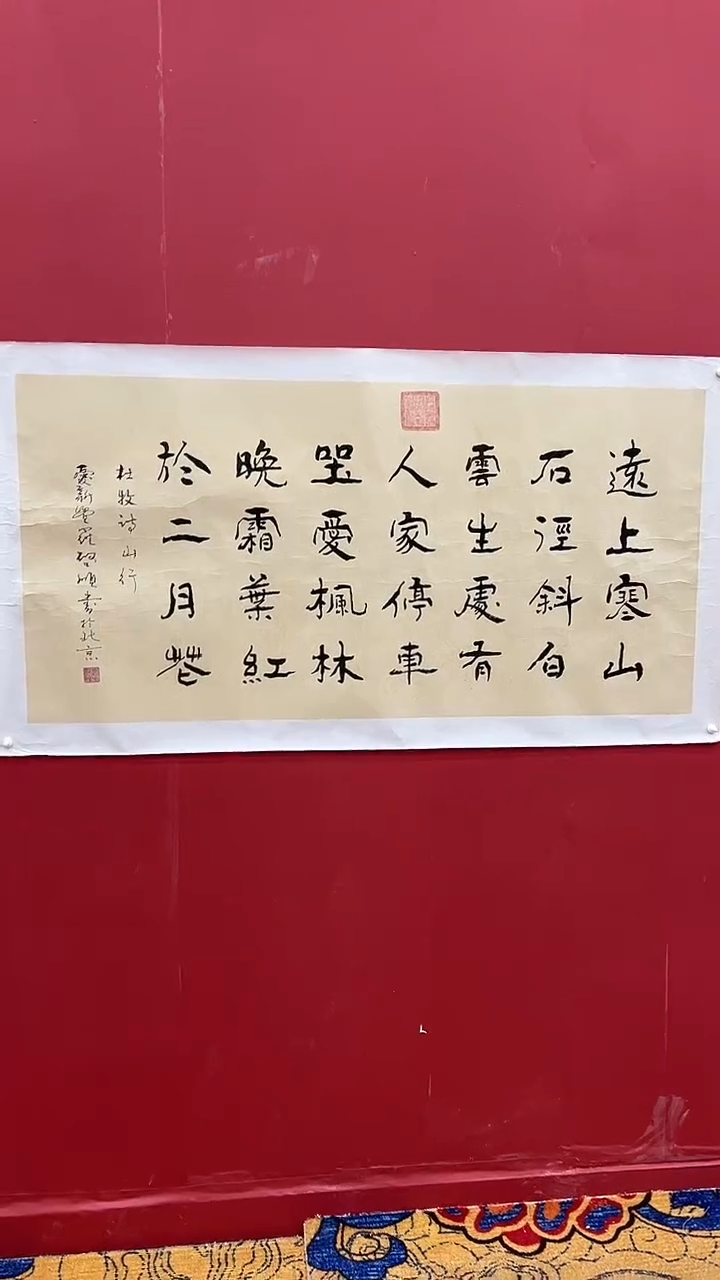 遠上寒山
石徑斜白
雲生處有
人家停車
坐愛楓林
晚霜葉紅
於二月花
杜牧詩山行
愛新覺羅書於北京